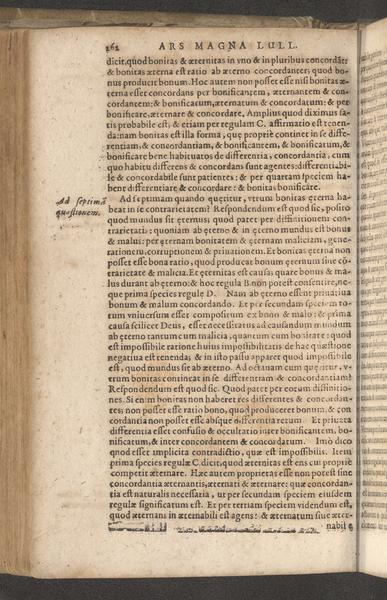 262 ARS MAGNA LULL.
dicit, quod bonitas & æternitas in vno & in pluribus concordãt:
& bonitas æterna est ratio ab æterno concordanter, quod bo-
nus producit bonum. Hoc autem non posset esse nisi bonitas æ-
terna esset concordans per bonificantem, æternantem & con-
cordantem: & bonificatum, æternatum & concordatum: & per
bonificare, æternare & concordare. Amplius quod diximus sa-
tis probabile est, & etiam per regulam C. affirmatio est tenen-
da: nam bonitas est illa forma, quæ propriè continet in se diffe-
rentiam, & concordantiam, & bonificantem, & bonificatum, &
bonificare bene habituatos de differentia, concordantia, cum
quo habitu differens & concordans sunt agentes: differentiabi-
le & concordabile sunt patientes: & per quartam speciem ha-
bent differentiare & concordare: & bonitas bonificare.
Ad septimã
quæstionem.
Ad septimam quando quæritur, vtrum bonitas æterna ha-
beat in se contrarietatem? Respondendum est quod sic, posito
quod mundus sit æternus: quod patet per diffinitionem con-
trarietatis: quoniam ab æterno & in æterno mundus est bonus
& malus: per æternam bonitatem & æternam maliciam, gene-
rationem, corruptionem & priuationem. Et bonitas æterna non
posset esse bona ratio, quod producat bonum æternum sine cõ-
trarietate & malicia. Et æternitas est causa, quare bonus & ma-
lus durant ab æterno: & hoc regula B. non potest consentire, ne-
que prima species regulæ D. Nam ab æterno essent priuatiua
bonum & malum concordando. Et per secundam speciem to-
tum vniuersum esset compositum ex bono & malo: & prima
causa scilicet Deus, esset necessitatus ad causandum mundum
ab æterno tantum cum malicia, quantum cum bonitate: quod
est impossibile ratione huius impossibilitatis de hac quæstione
negatiua est tenenda; & in isto passu apparet quod impossibile
est, quod mundus sit ab æterno. Ad octauam cum quæritur, v-
trum bonitas contineat in se differentiam & concordantiam?
Respondendum est quod sic. Quod patet per eorum diffinitio-
nes. Si enim bonitas non haberet res differentes & concordan-
tes; non posset esse ratio bono, quod produceret bonum, & con
cordantia non posset esse absque differentia rerum. Et priuata
differentia esset confusio & occultatio inter bonificantem, bo-
nificatum, & inter concordantem & concordatum. Imò dico
quod esset implicita contradictio, quæ est impossibilis. Item
prima species regulæ C. dicit, quod æternitas est ens cui propriè
competit æternare. Hæc autem proprietas esse non potest sine
concordantia æternantis, æternati & æternare: quæ concordan-
tia est naturalis necessaria, vt per secundam speciem eiusdem
regulæ significatum est. Et per tertiam speciem videndum est,
quod æternans in æternabili est agens: & æternatum siue æter-
nabile